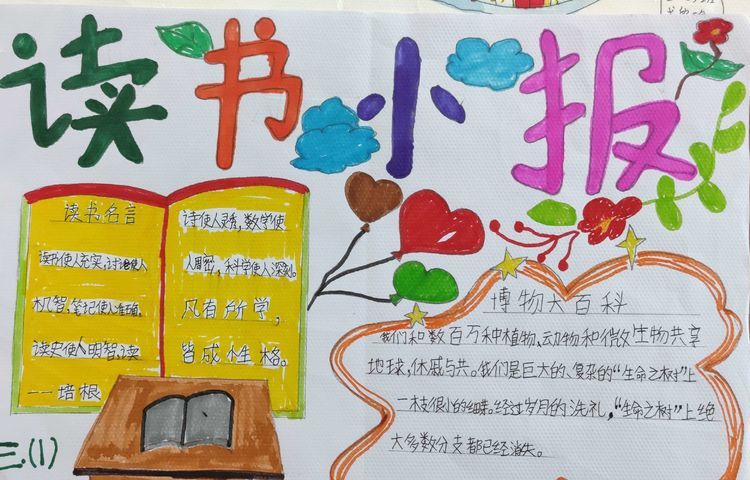 读书小报
读书名言
读书使人充实,讨论使人
机智,笔记使人准确,
读史使人明智,读
——培根
诗使人灵秀,数学使
人周密,科学使人深刻。
凡有所学,
皆成性格。
博物大百科
我们和数百万种植物、动物和微生物共享
地球,休戚与共。我们是巨大的、复杂的“生命之树”上
一枝很小的细。经过岁月的洗礼,“生命之树”上绝
大多数分支都已经消失。
三.(1)